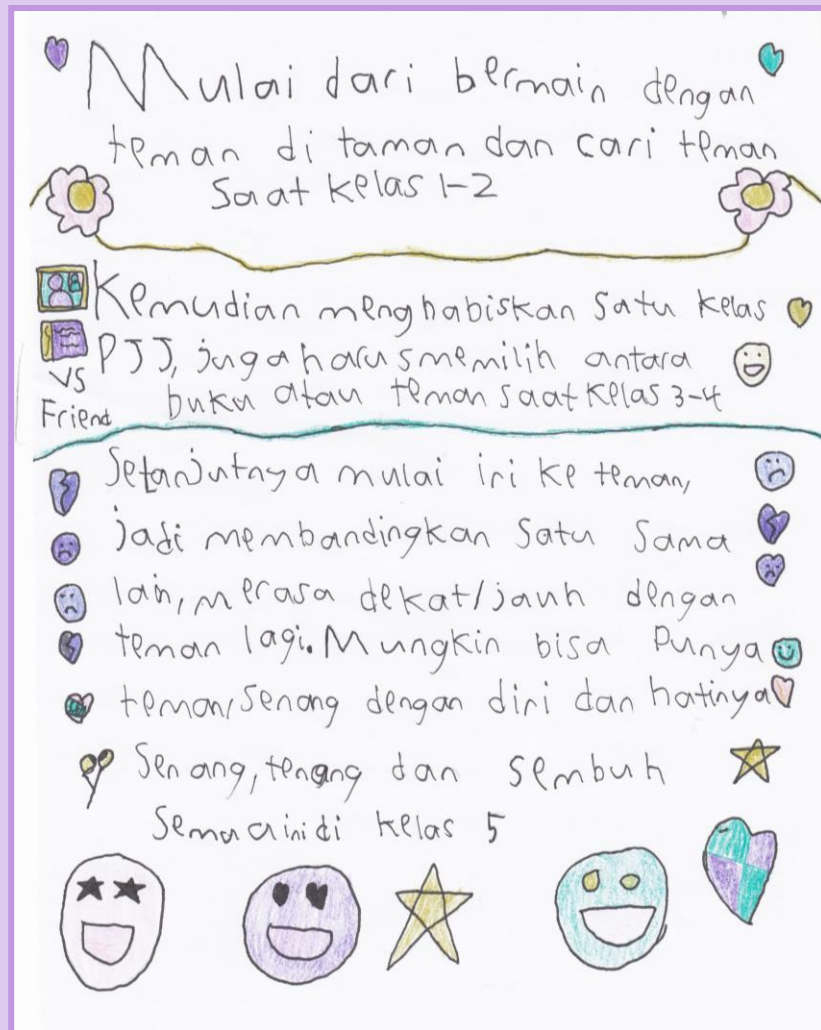 Mulai dari bermain dengan
teman di taman dan cari teman
Saat kelas 1-2
Kemudian menghabiskan satu kelas
PJJ, juga harus memilih antara
VS
buku atau teman saat kelas 3-4
Friend
Selanjutnya mulai iri ke teman,
jadi membandingkan satu sama
lain, merasa dekat/jauh dengan
teman lagi. Mungkin bisa Punya
teman/senang dengan diri dan hatinya
Senang, tenang dan sembuh
Semua ini di kelas 5